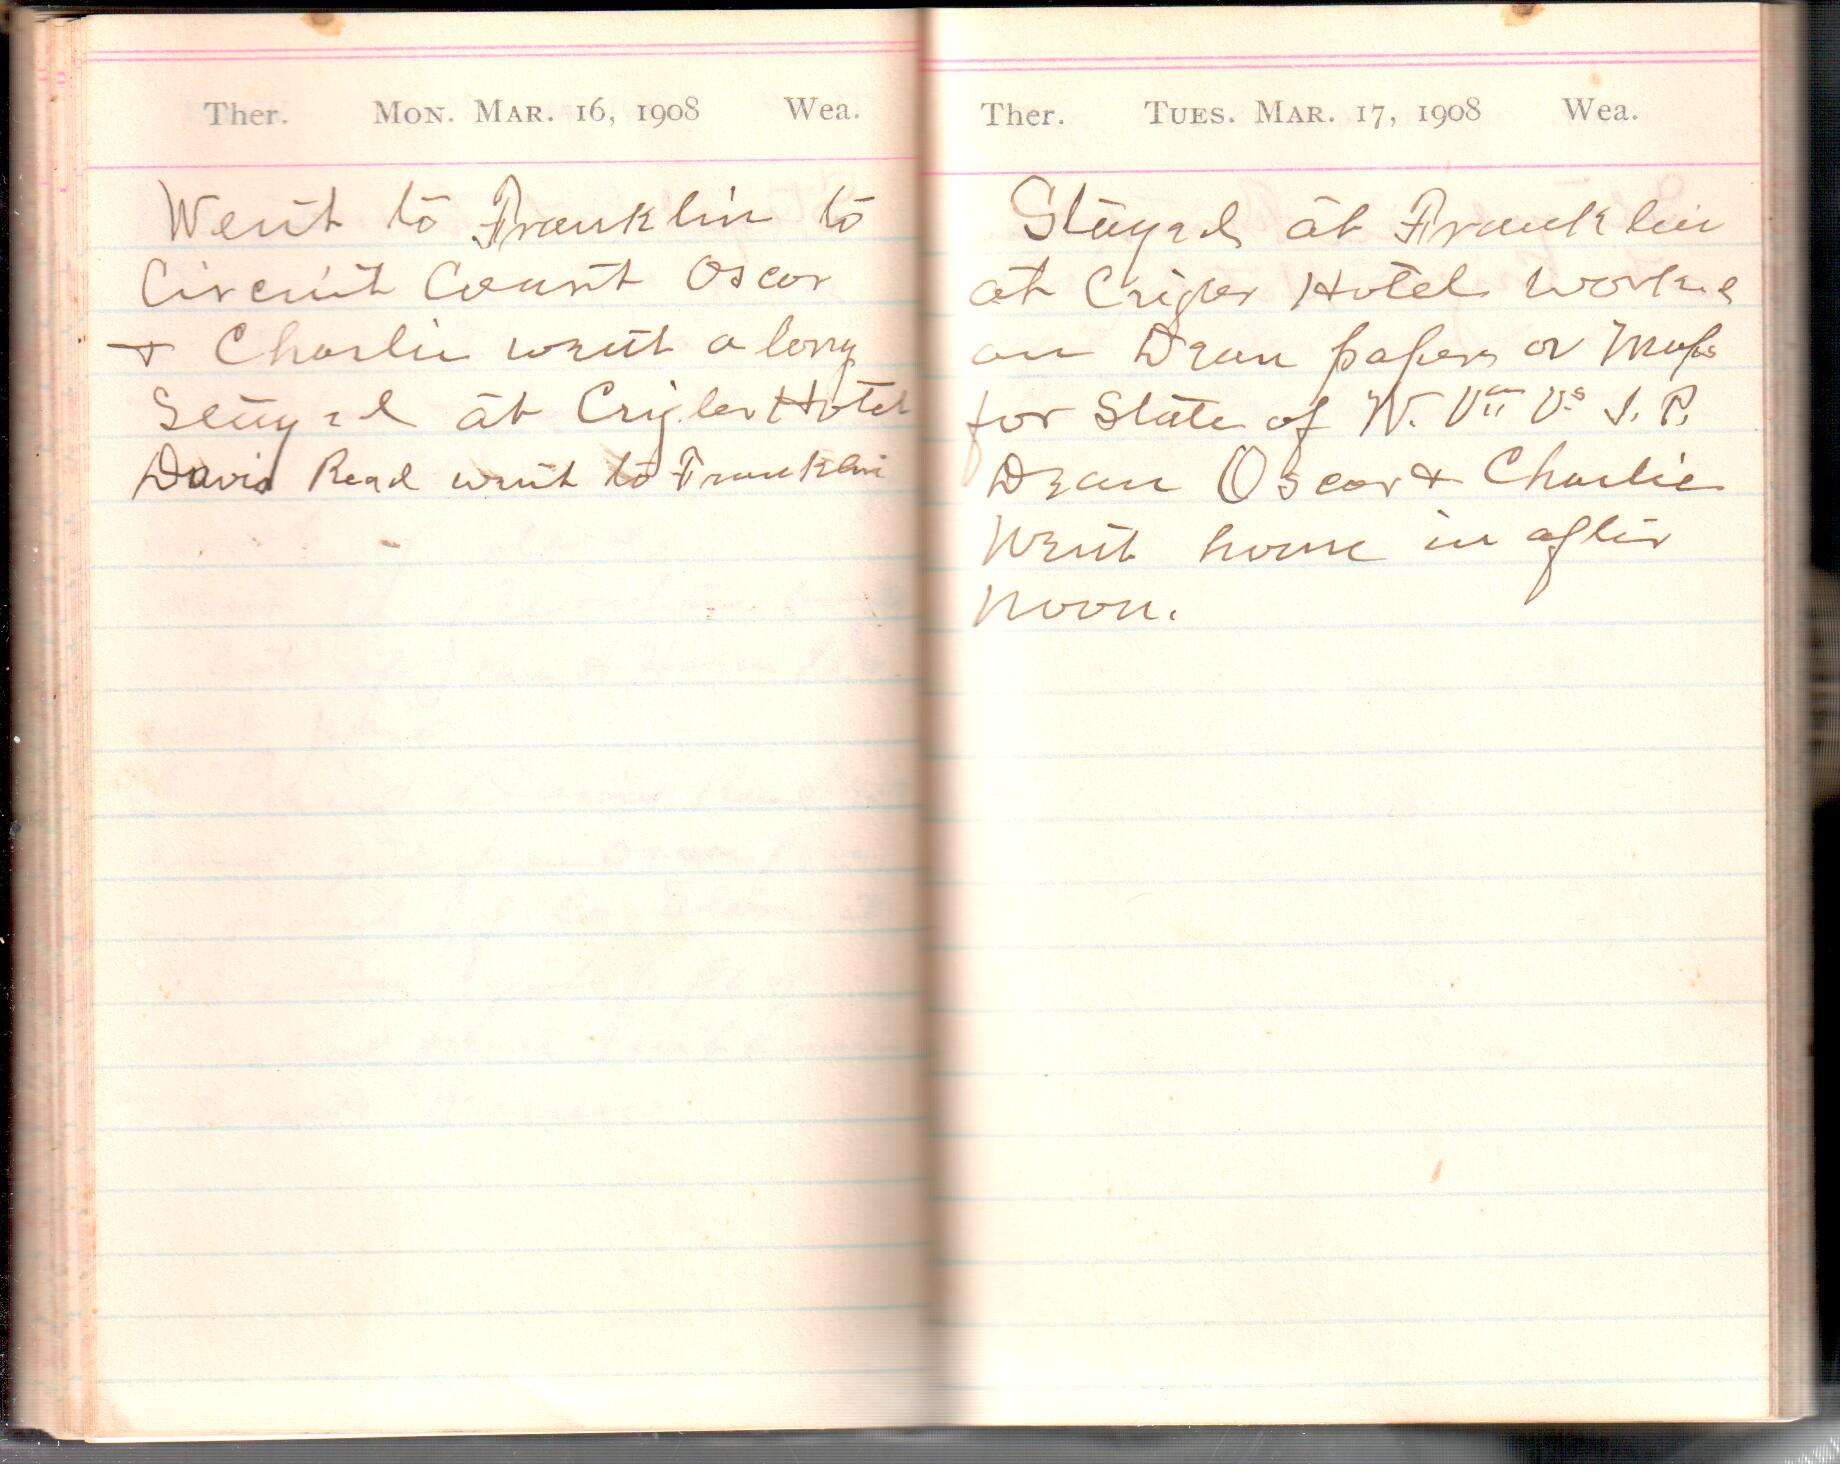 Ther. Mon. Mar. 16, 1908 Wea.
Went to Franklin to
Circuit Court Oscar
& Charlie went along
Stayed at Crigler Hotel
David Read went to Franklin
Ther. Tues. Mar. 17, 1908 Wea.
Stayed at Franklin
at Crigler Hotel worked
on Dean papers or Maps
for State of W. Va Vs J. P.
Dean Oscar & Charlie
went home in after
noon.